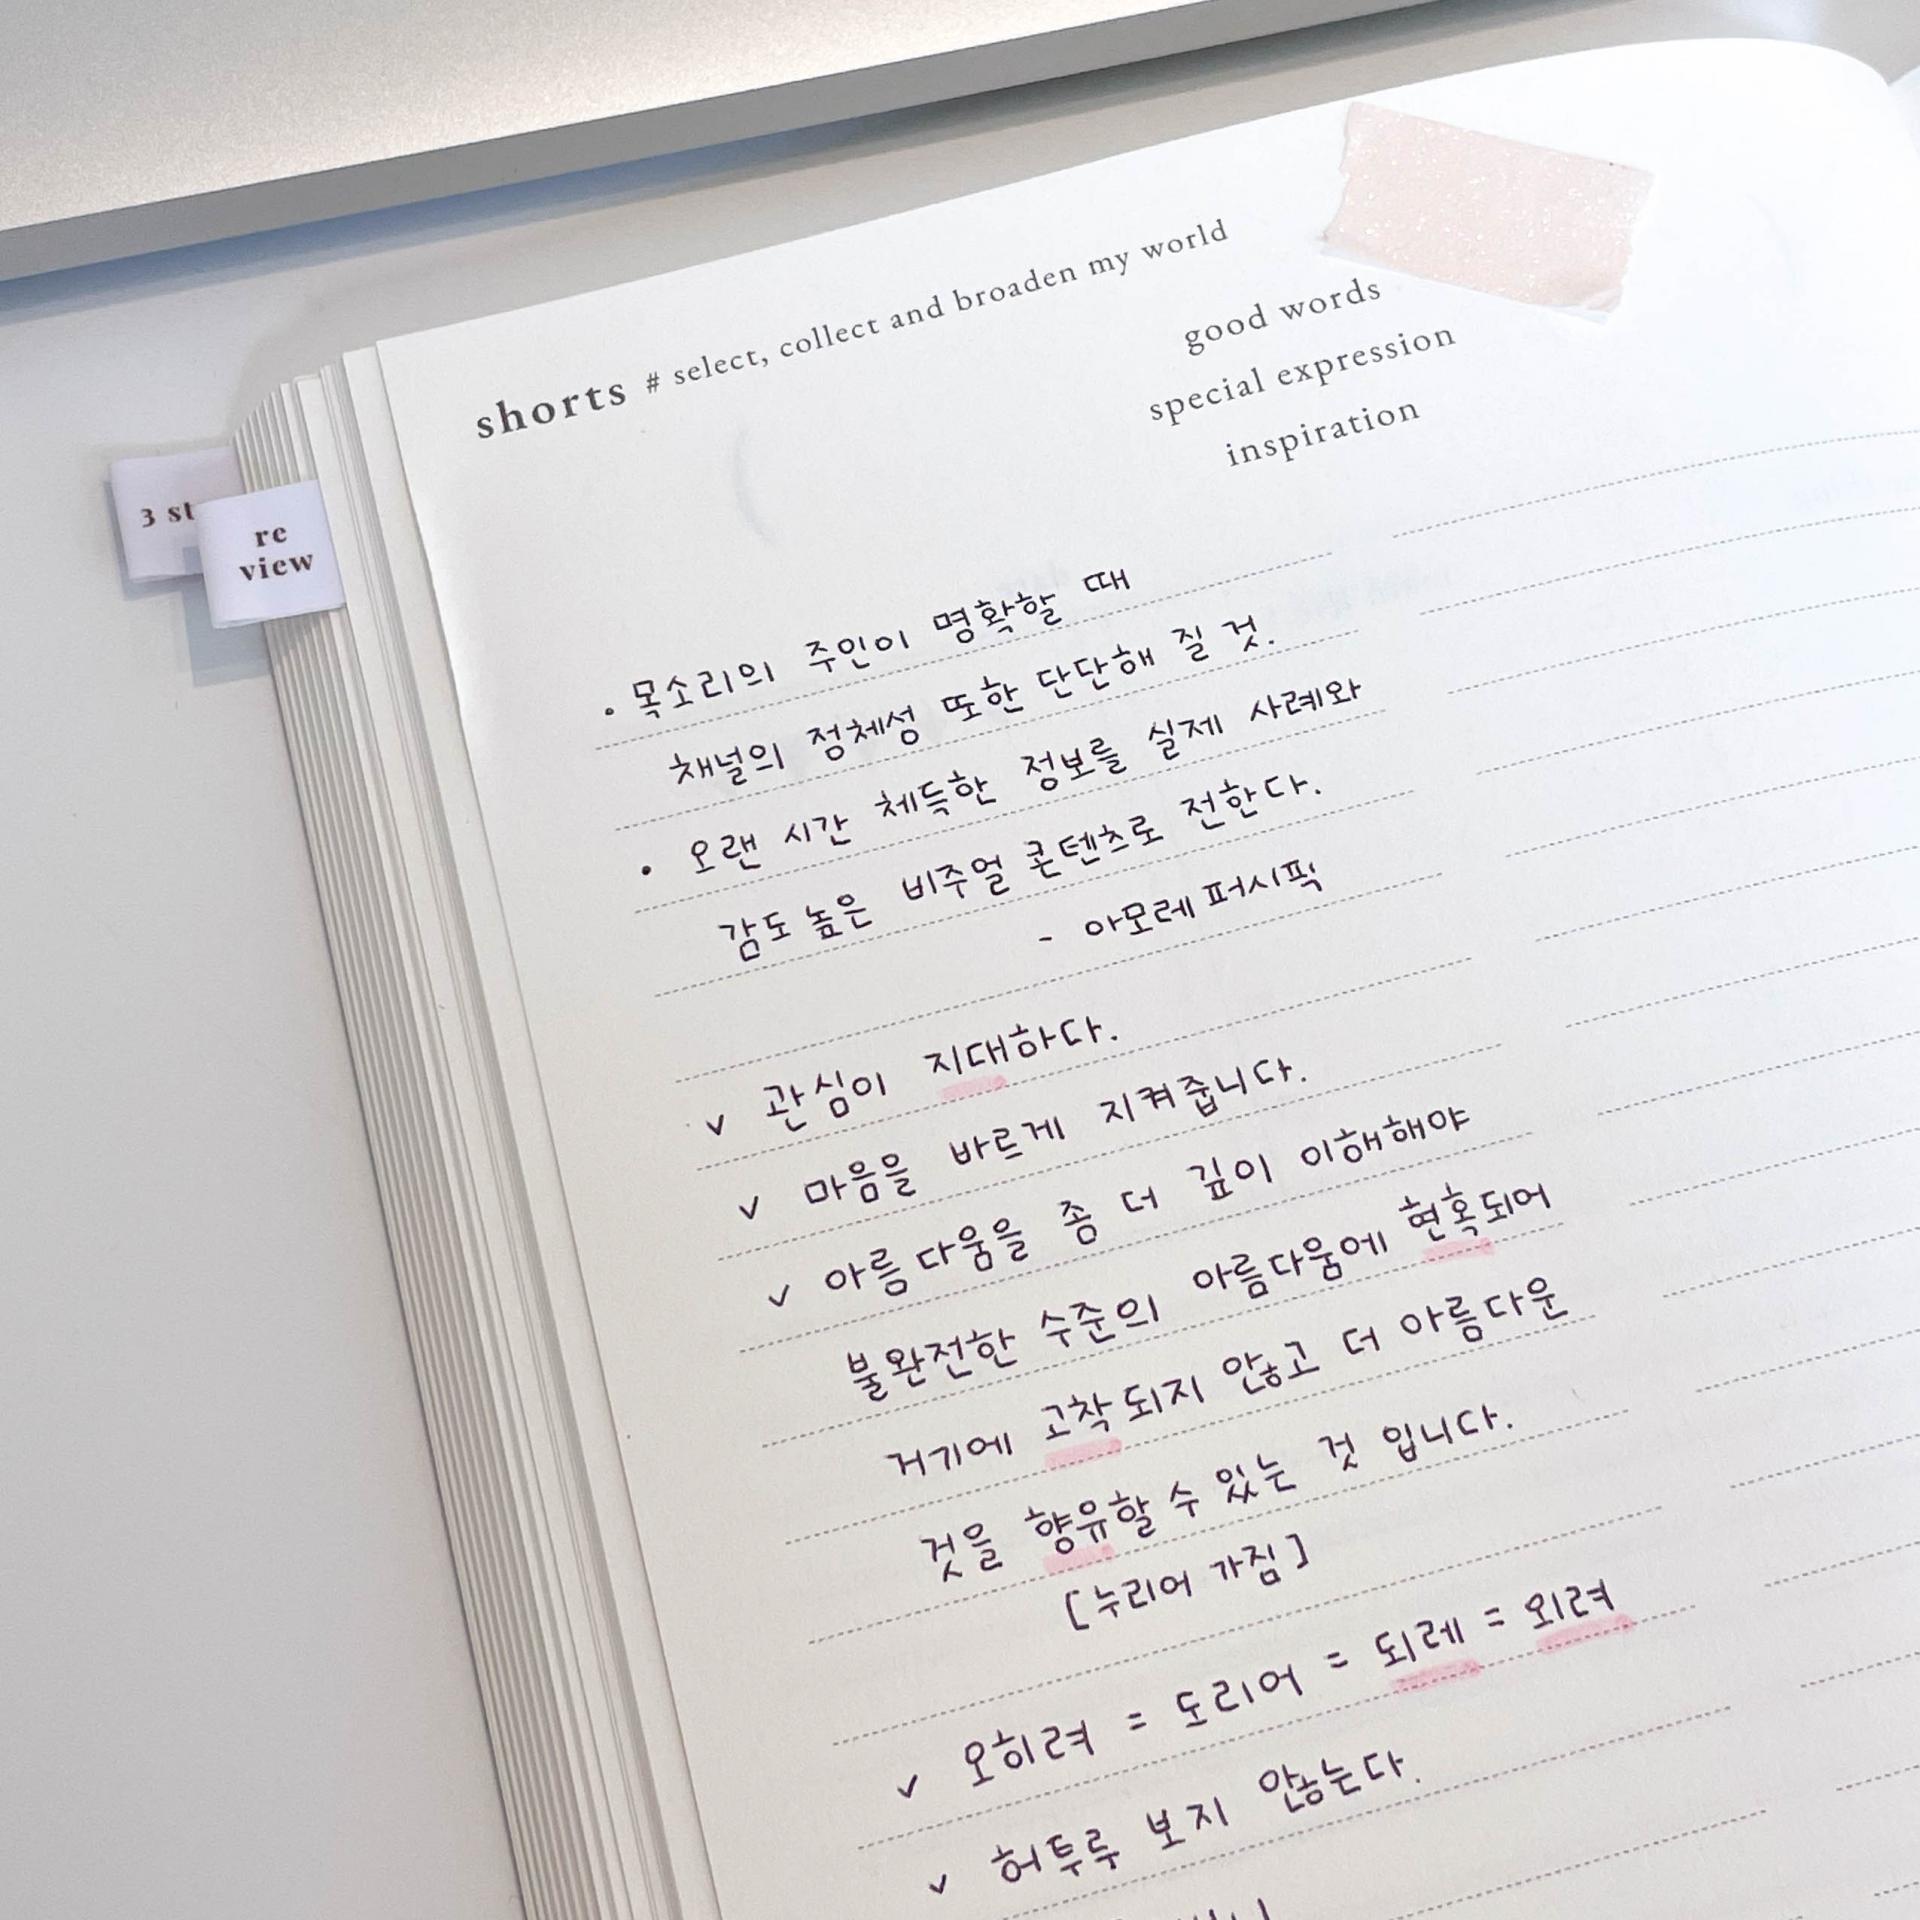 shorts # select, collect and broaden my world
good words
special expression
inspiration
3 st
re
view
• 목소리의 주인이 명확할 때
채널의 정체성 또한 단단해 질 것.
• 오랜 시간 체득한 정보를 실제 사례와
감도 높은 비주얼 콘텐츠로 전한다.
- 아모레퍼시픽
v 관심이 지대하다.
v 마음을 바르게 지켜줍니다.
v 아름다움을 좀 더 깊이 이해해야
불완전한 수준의 아름다움에 현혹되어
거기에 고착되지 않고 더 아름다운
것을 향유할 수 있는 것 입니다.
[누리어 가짐]
v 오히려 = 도리어 = 되레 = 외려
v 허투루 보지 않는다.